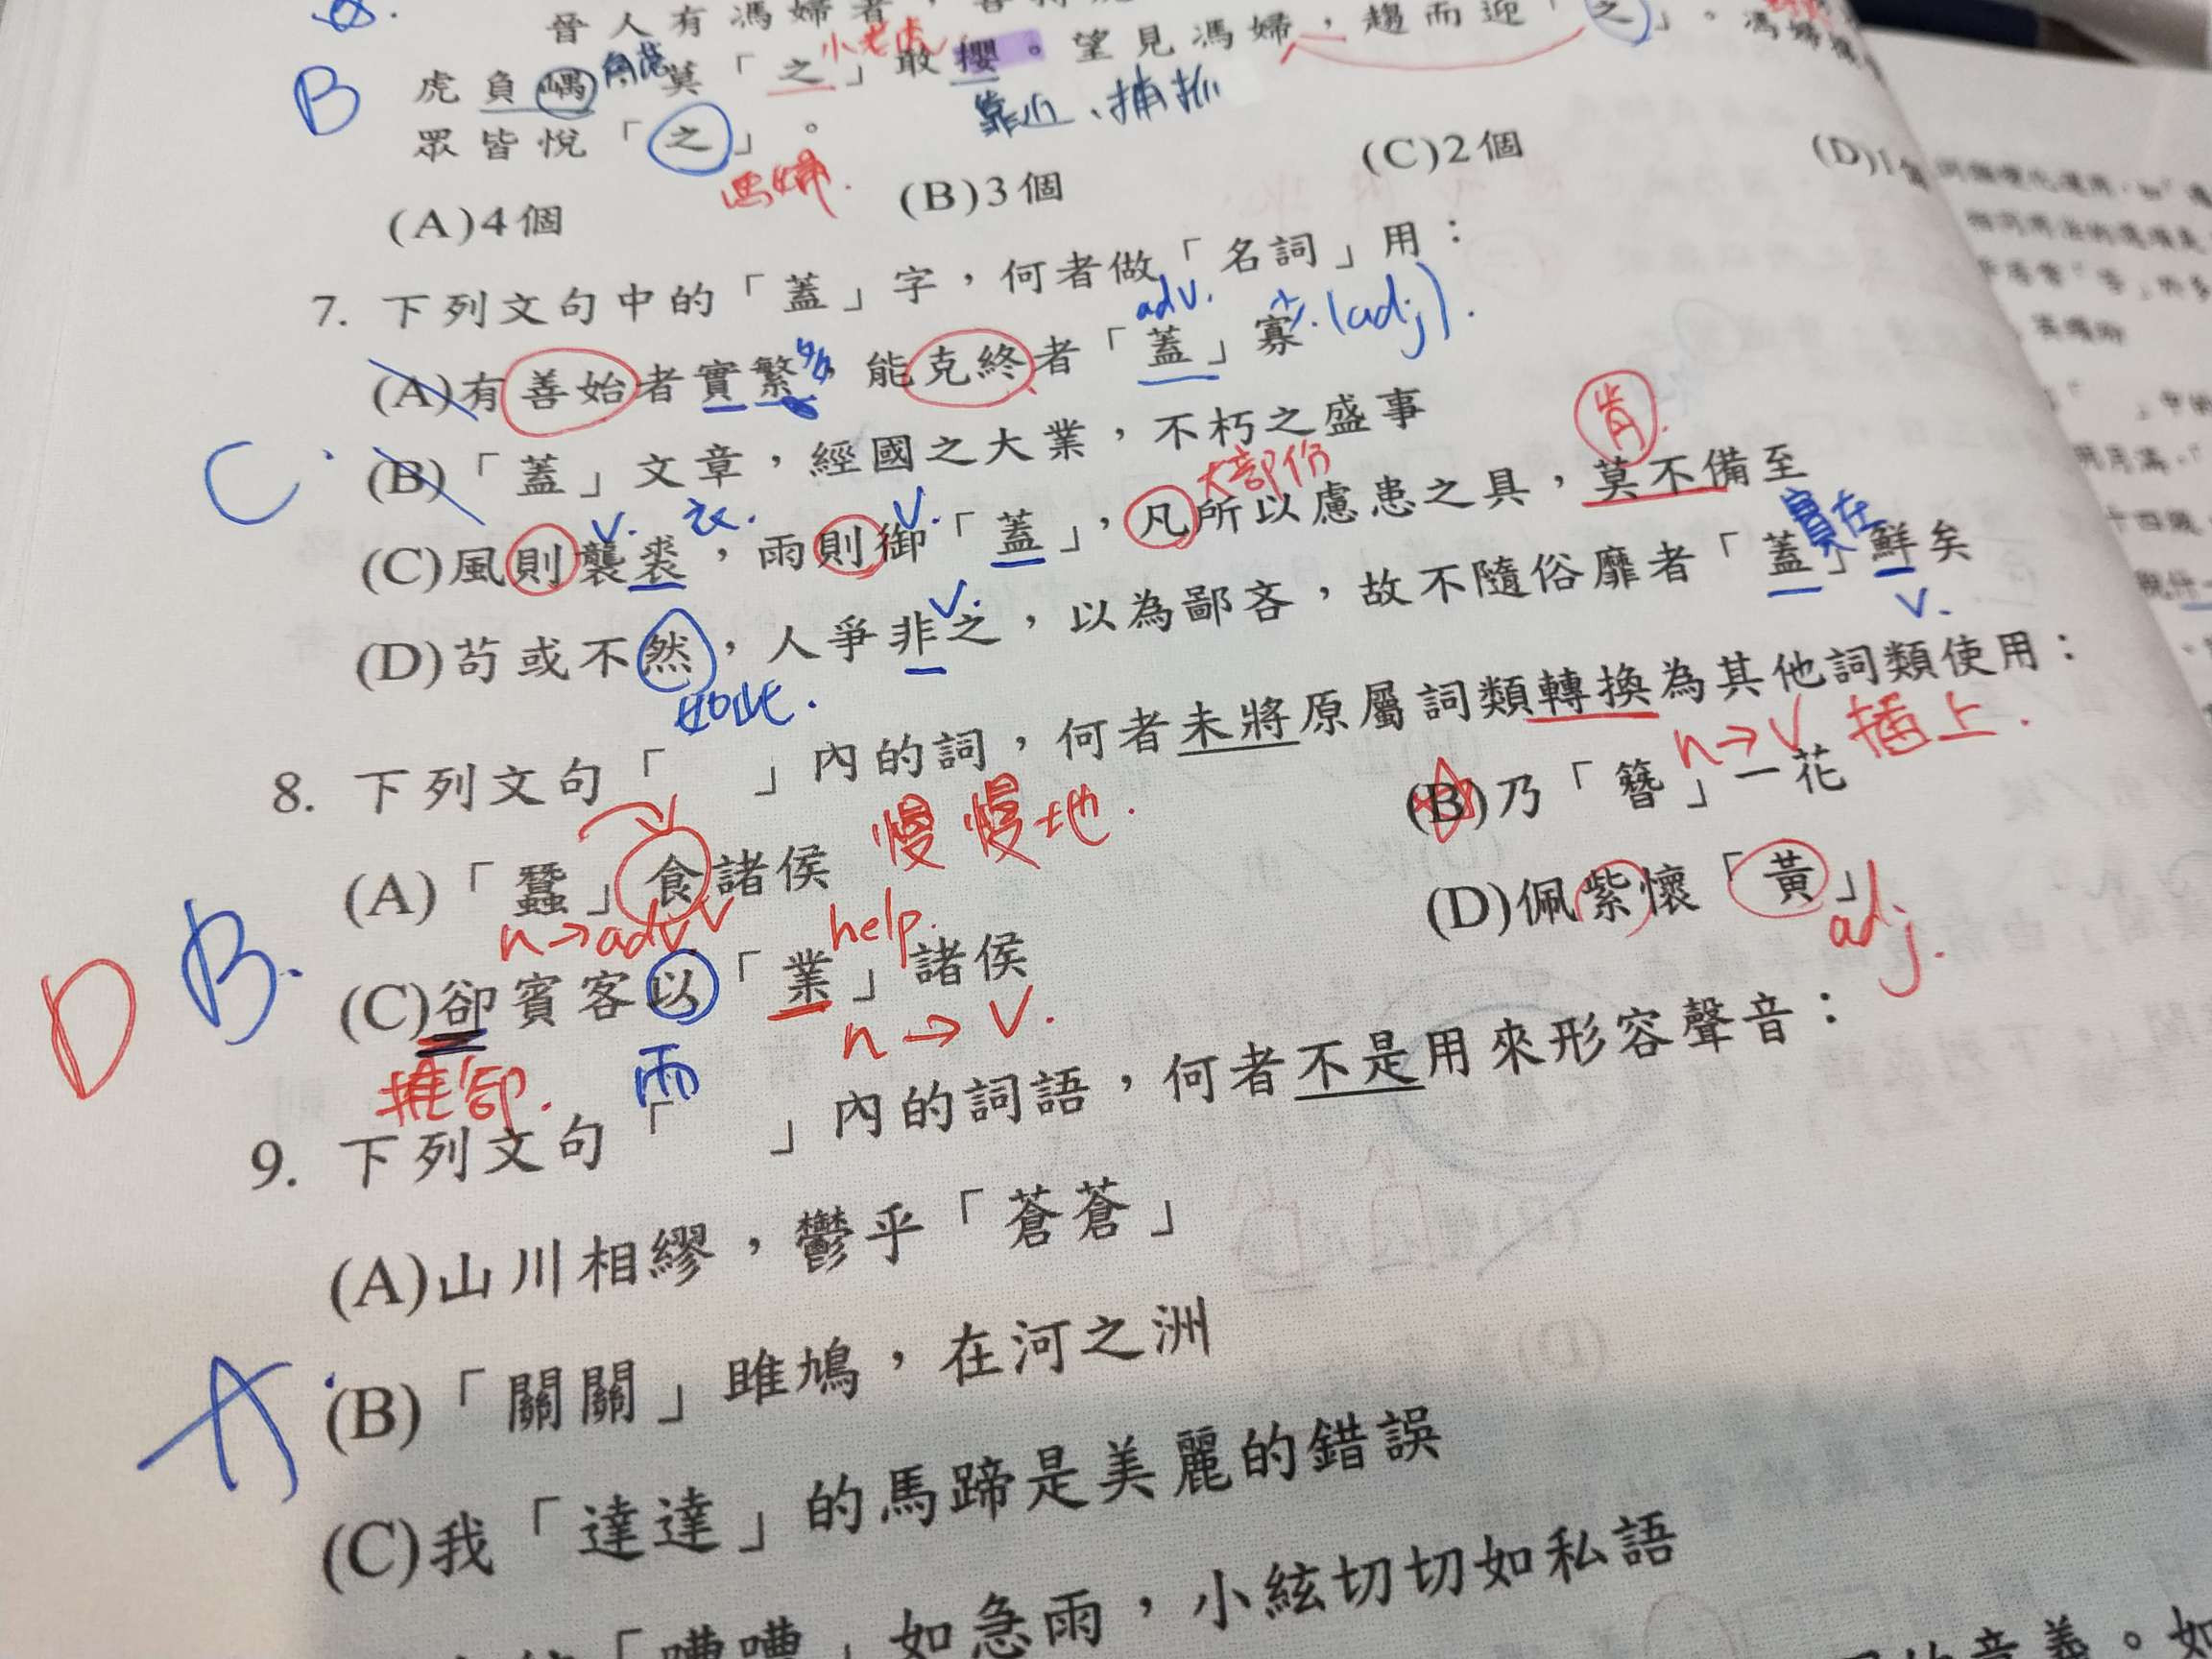 晉人有馮婦者，善搏
B 虎負嵎 莫「之」敢攖。望見馮婦，趨而迎「之」。馮婦攘
小老虎
靠近、捕抓
眾皆悅「之」。
馮婦.
(A)4個 (B)3個 (C)2個 (D)1個
7. 下列文句中的「蓋」字，何者做「名詞」用：
adv. 少.(adj).
(A)有善始者實繁，能克終者「蓋」寡
C.
(B)「蓋」文章，經國之大業，不朽之盛事
大部份 肯.
V. 衣. V.
(C)風則襲裘，雨則御「蓋」，凡所以慮患之具，莫不備至
實在
(D)苟或不然，人爭非之，以為鄙吝，故不隨俗靡者「蓋」鮮矣
V. V.
如此.
8. 下列文句「 」內的詞，何者未將原屬詞類轉換為其他詞類使用：
n→V 插上.
D B.
(A)「蠶」食諸侯 慢慢地. (B)乃「簪」一花
n→adv. V help.
(C)卻賓客以「業」諸侯 (D)佩紫懷「黃」
adj.
推卻. 而 n→V.
9. 下列文句「 」內的詞語，何者不是用來形容聲音：
(A)山川相繆，鬱乎「蒼蒼」
A.
(B)「關關」雎鳩，在河之洲
(C)我「達達」的馬蹄是美麗的錯誤
「嘈嘈」如急雨，小絃切切如私語
的意義。如